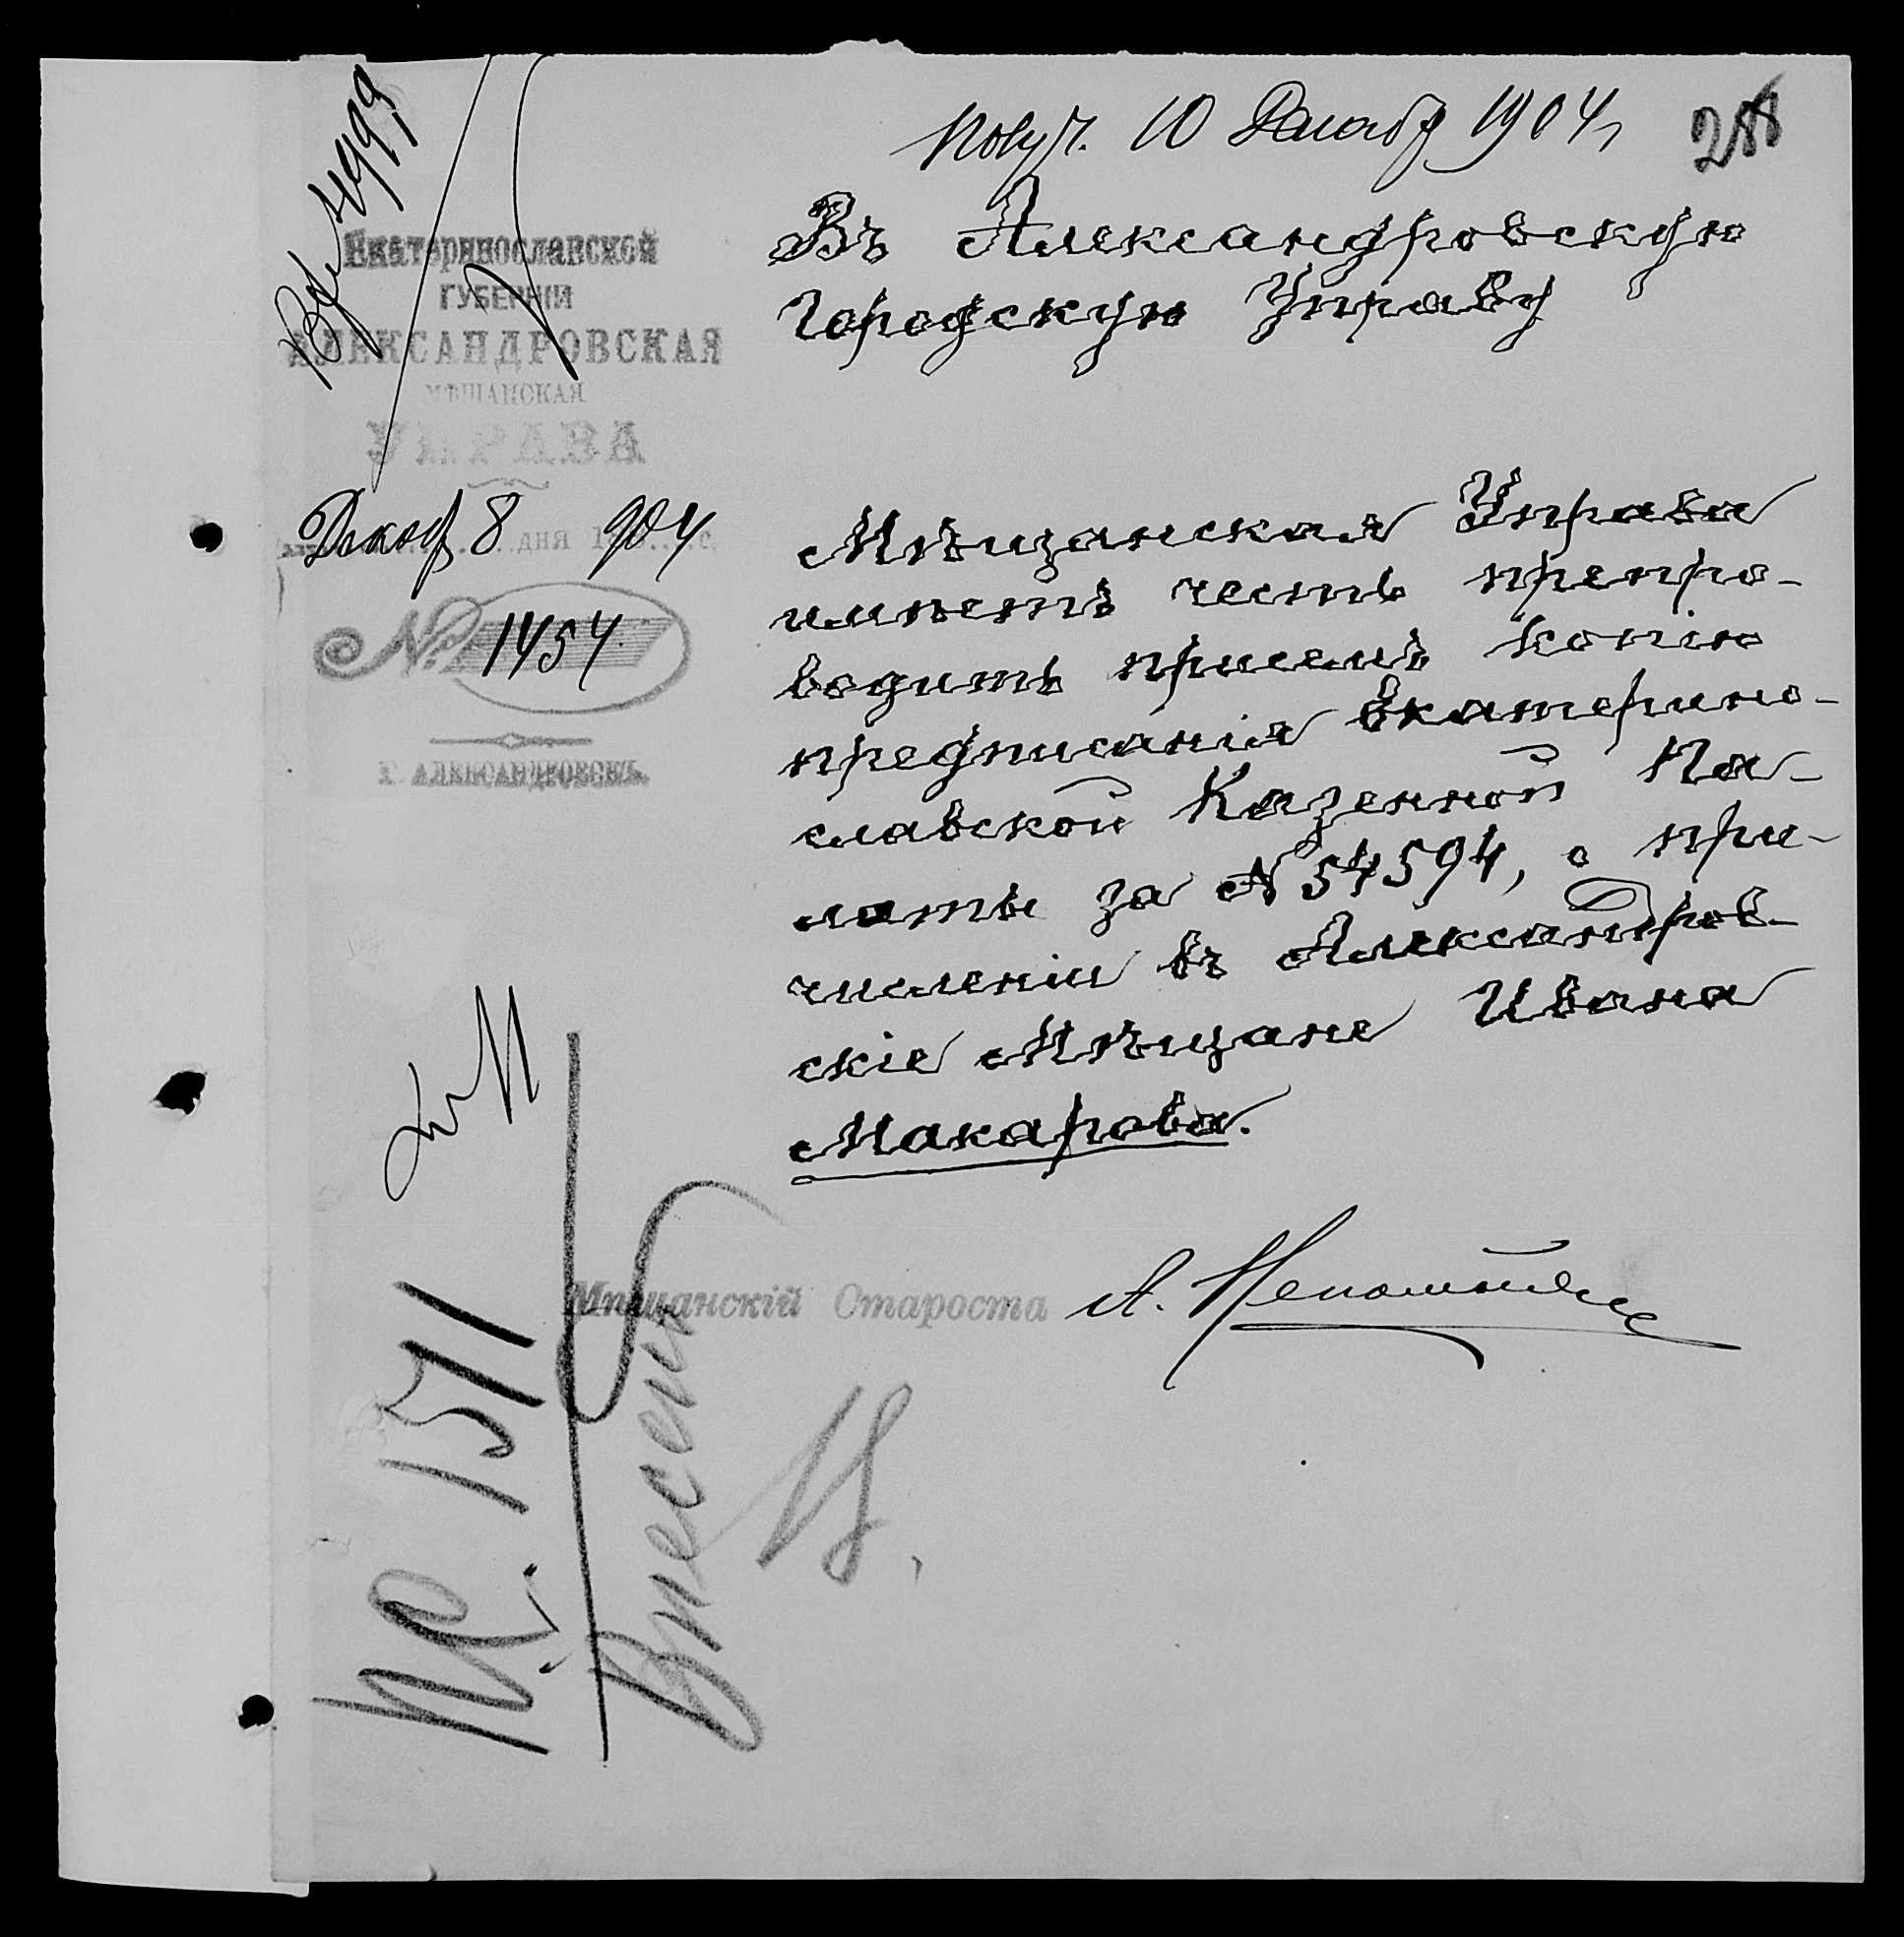 Получ. 10 Декабр 1904 г
Екатеринославской
ГУБЕРНІИ
АЛЕКСАНДРОВСКАЯ
МѢЩАНСКАЯ
УПРАВА
Декабр 8 дня 1904 г.
№ 1454.
Г. АЛЕКСАНДРОВСКЪ.
Въ Александровскую
Городскую Управу
Мѣщанская Управа
имѣетъ честь препро-
водить присемъ копію
предписанія Екатерино-
славской Казенной Па-
латы за № 54594, о при-
численіи въ Александров-
скіе Мѣщане Ивана
Макарова.
Мѣщанскій Староста
1511
Внесенъ